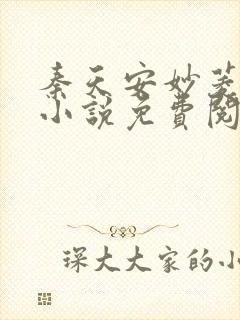 秦天安妙菱
小説免費閱
琛大大家的小